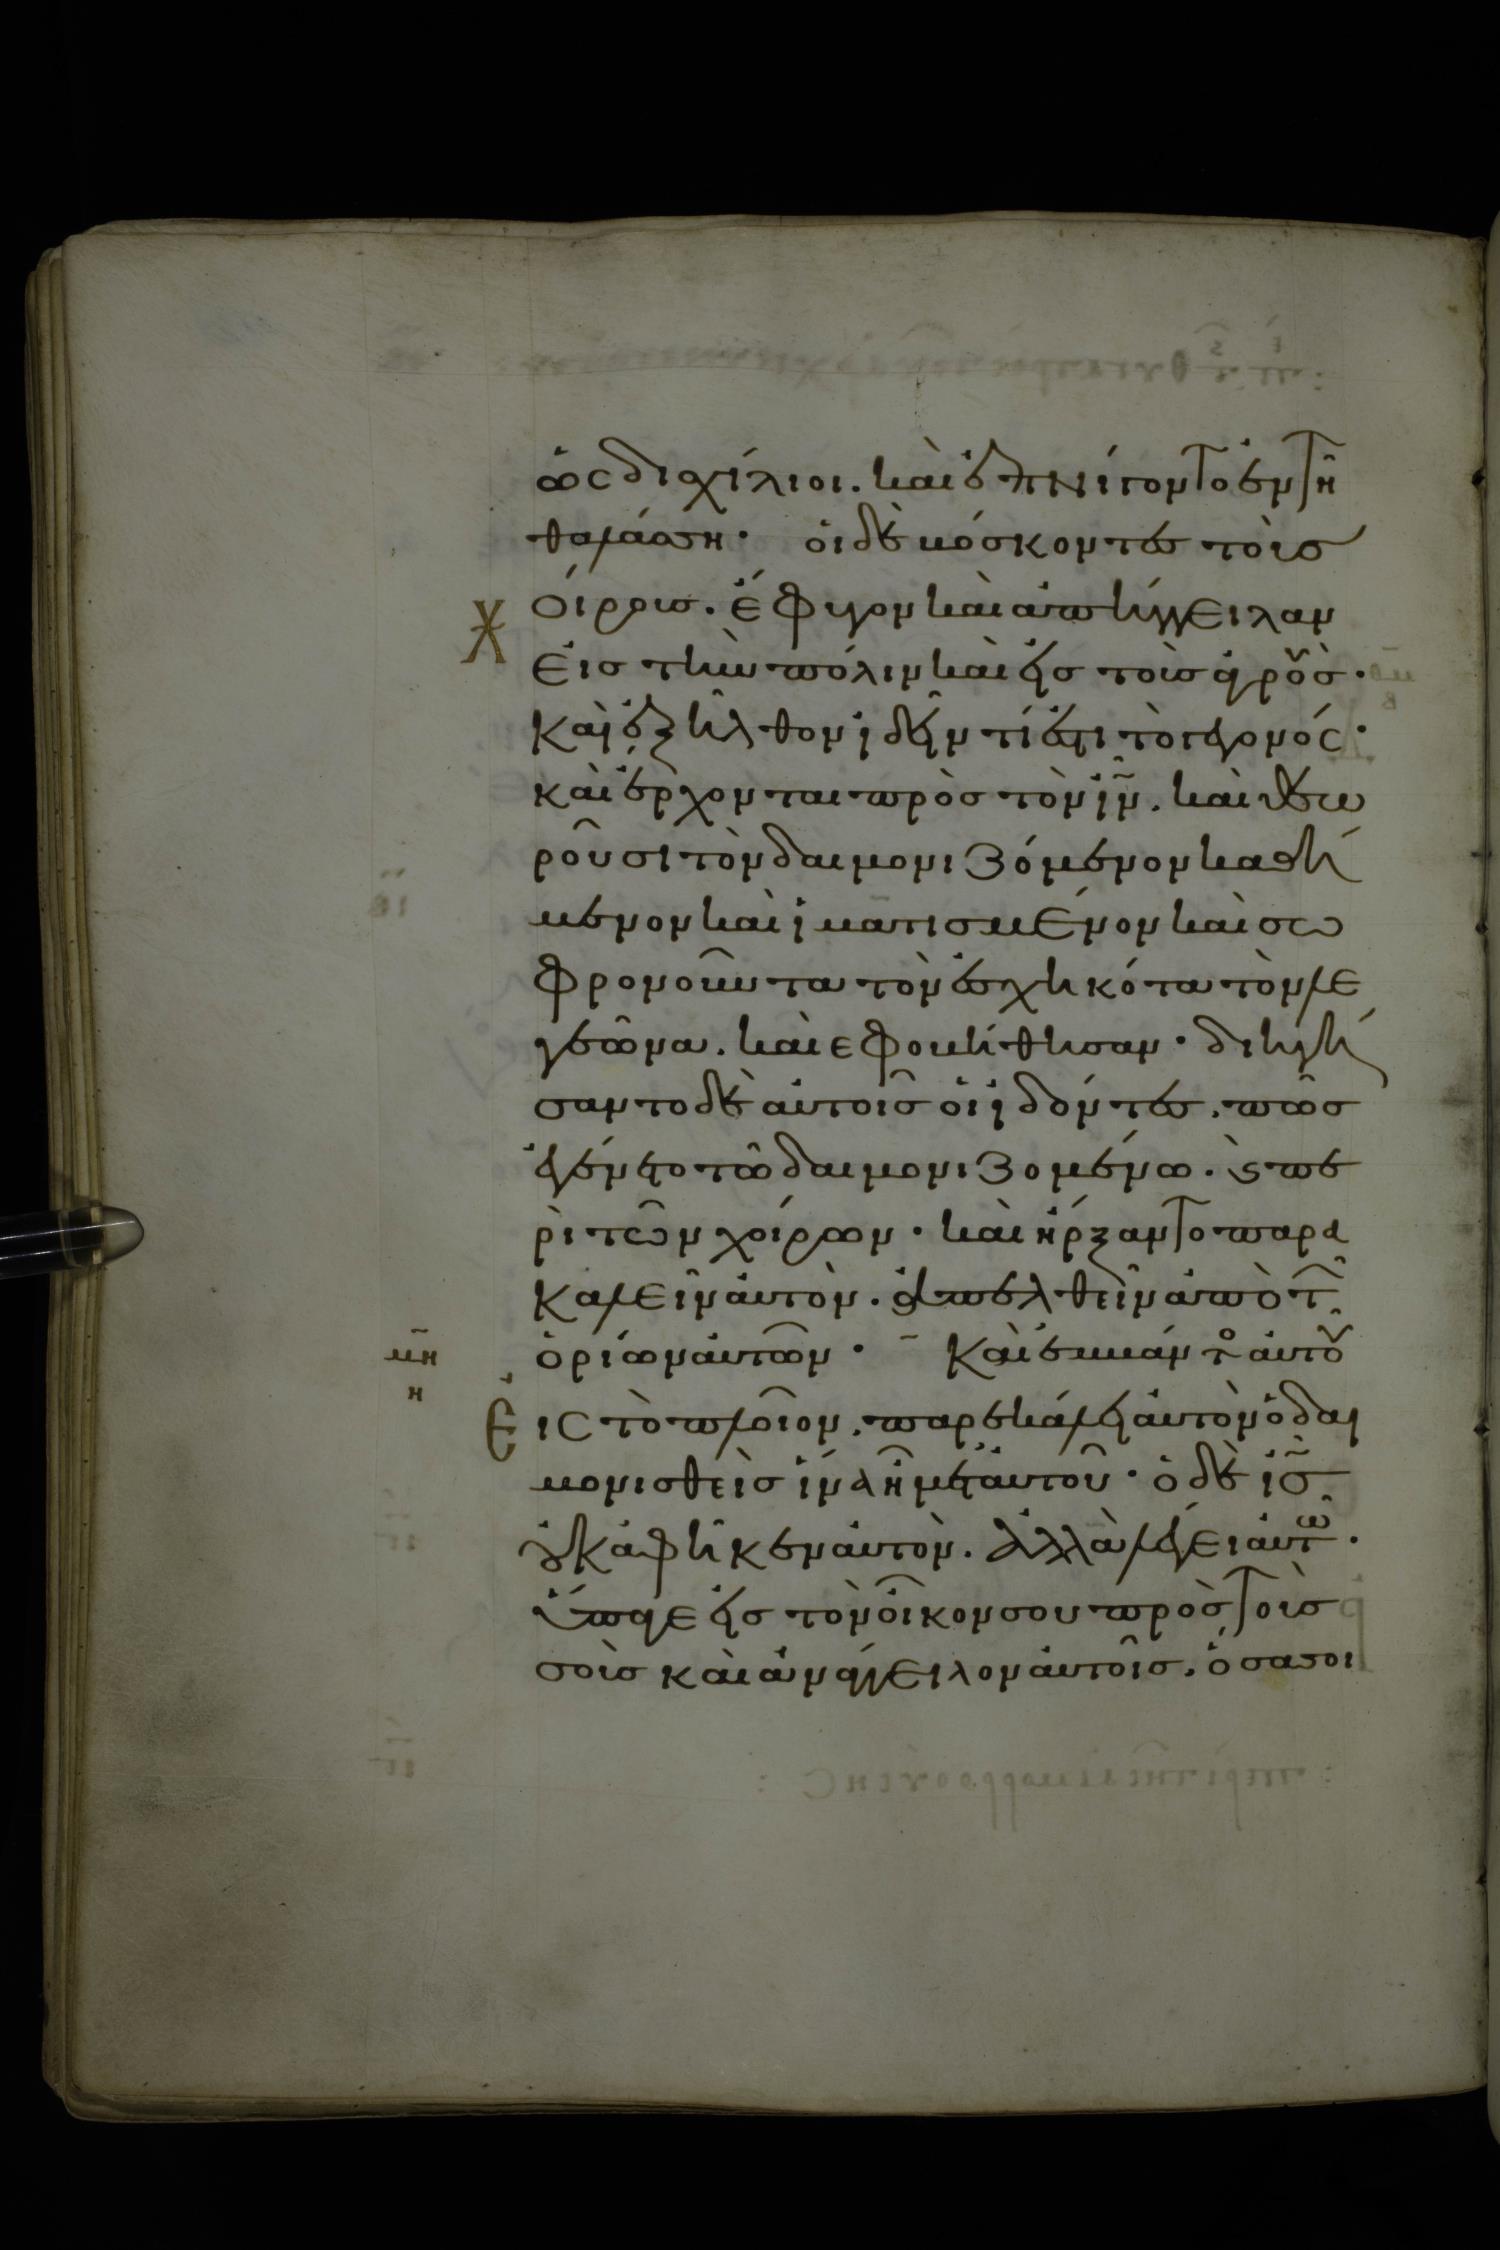 ὡς διχίλιοι. καὶ ἐπνίγοντο ἐν τῆ
θαλάσση· οἱ δὲ βόσκοντες τοὺσ
Χοίρουσ. ἔφυγον καὶ ἀπήγγειλαν
εἰσ τὴν πόλιν καὶ εἰσ τοὺσ ἀγροὺσ·
καὶ ἐξῆλθον ἰδεῖν τί ἐστι τὸ γεγονός·
καὶ ἔρχονται πρὸσ τὸν ἰν̅. καὶ θεω
ροῦσι τὸν δαιμονιζόμενον καθή
μενον καὶ ἱματισμένον καὶ σω
φρονοῦντα τὸν ἐσχηκότα τὸν λε
γεῶνα. καὶ εφοβήθησαν· διηγή
σαντο δὲ αὐτοῖσ οἱ ἰδόντεσ. πῶσ
ἐγένετο τῶ δαιμονιζομένω. ϗ πε
ρὶ τῶν χοίρων· καὶ ἤρξαντο παρα
καλεῖν αὐτὸν. ἀπελθεῖν ἀπὸ τ̅
ὁρίων αὐτῶν· Καὶ ἐμβάντος αὐτοῦ
μη̅
η
Εἰς τὸ πλοῖον. παρεκάλει αὐτὸν ὁ δαι
μονισθεὶσ ἵνα ἦ μετ᾽ αὐτοῦ· ὁ δὲ ἰσ̅
οὐκ ἀφῆκεν αὐτὸν. ἀλλὰ λέγει αὐτῶ·
ὕπαγε εἰσ τὸν οἶκον σου πρὸσ τοὺσ
σοὺσ καὶ ἀνάγγειλον αὐτοῖσ. ὅσα σοι